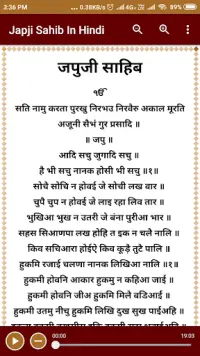 3:36 PM
... 0.38KB/s
4G
Japji Sahib In Hindi
जपुजी साहिब
ੴ
सति नामु करता पुरखु निरभउ निरवैरु अकाल मूरति
अजूनी सैभं गुर प्रसादि ॥
॥ जपु ॥
आदि सचु जुगादि सचु ॥
है भी सचु नानक होसी भी सचु ॥१॥
सोचै सोचि न होवई जे सोची लख वार ॥
चुपै चुप न होवई जे लाइ रहा लिव तार ॥
भुखिआ भुख न उतरी जे बंना पुरीआ भार ॥
सहस सिआणपा लख होहि त इक न चलै नालि ॥
किव सचिआरा होईऐ किव कूड़ै तुटै पालि ॥
हुकमि रजाई चलणा नानक लिखिआ नालि ॥१॥
हुकमी होवनि आकार हुकमु न कहिआ जाई ॥
हुकमी होवनि जीअ हुकमि मिलै वडिआई ॥
हुकमी उतमु नीचु हुकमि लिखि दुख सुख पाईअहि ॥
00:00
19:03